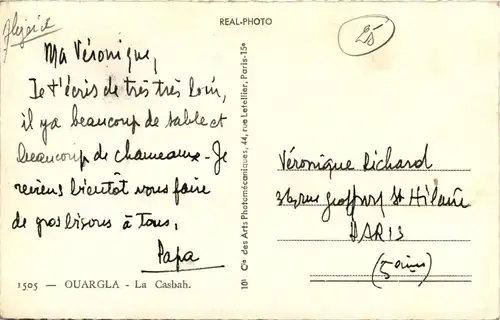 Algérie
REAL-PHOTO
25
Ma Véronique,
Je t'écris de très très loin,
il y a beaucoup de sable et
beaucoup de chameaux - Je
reviens bientôt vous faire
de gros bisous à Tous,
Papa
1505 — OUARGLA - La Casbah.
10ᵗ Cⁱᵉ des Arts Photomécaniques, 44, rue Letellier, Paris-15ᵉ
Véronique Richard
rue Geoffroy St Hilaire
PARIS
(5 ème)